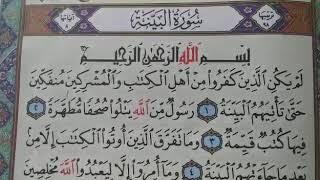 سُورَةُ الْبَيِّنَةِ
بِسْمِ اللَّهِ الرَّحْمَٰنِ الرَّحِيمِ
لَمْ يَكُنِ الَّذِينَ كَفَرُوا مِنْ أَهْلِ الْكِتَابِ وَالْمُشْرِكِينَ مُنْفَكِّينَ
حَتَّى تَأْتِيَهُمُ الْبَيِّنَةُ ١ رَسُولٌ مِنَ اللَّهِ يَتْلُوا صُحُفًا مُطَهَّرَةً ٢
فِيهَا كُتُبٌ قَيِّمَةٌ ٣ وَمَا تَفَرَّقَ الَّذِينَ أُوتُوا الْكِتَابَ إِلَّا مِنْ
بَعْدِ مَا جَاءَتْهُمُ الْبَيِّنَةُ ٤ وَمَا أُمِرُوا إِلَّا لِيَعْبُدُوا اللَّهَ مُخْلِصِينَ